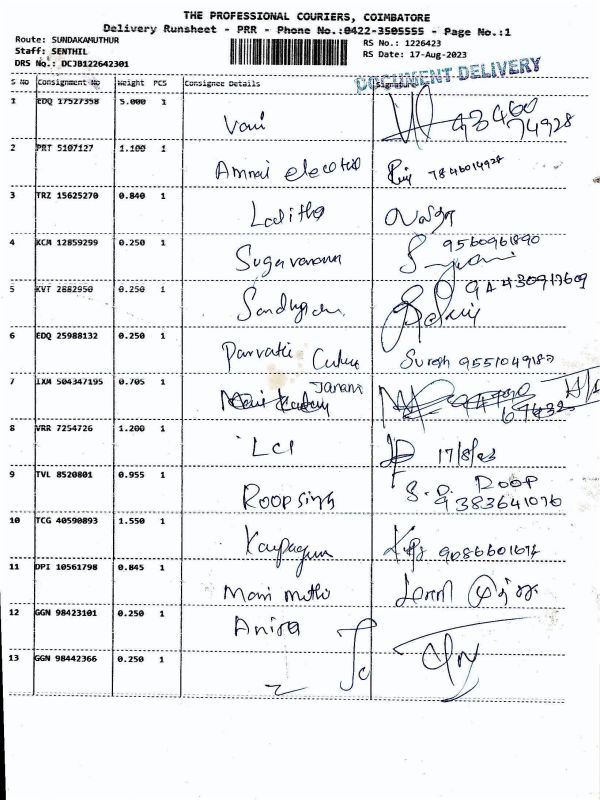 THE PROFESSIONAL COURIERS, COIMBATORE
Delivery Runsheet - PRR - Phone No.:0422-3505555 - Page No.:1
Route: SUNDAKAMUTHUR
Staff: SENTHIL
DRS No.: DCJB122642301
RS No.: 1226423
RS Date: 17-Aug-2023
DOCUMENT DELIVERY
S No Consignment No Weight PCS Consignee Details Signature
1 EDQ 17527358 5.000 1 Vani
2 PRT 5107127 1.100 1 Ammai 7846014928
3 TRZ 15625270 0.840 1 Lalitha
4 KCM 12859299 0.250 1 Sugavanam 9560961890
5 KVT 2882950 0.250 1
6 EDQ 25988132 0.250 1 Parvathi Suresh
7 IXM 504347195 0.705 1 Janani
8 VRR 7254726 1.200 1 LCI 17/8/23
9 TVL 8520801 0.955 1 Roopsing S. P. ROOP
9383641076
10 TCG 40590893 1.550 1 Karpagam
11 DPI 10561798 0.845 1 Mani muthu
12 GGN 98423101 0.250 1 Anitha
13 GGN 98442366 0.250 1